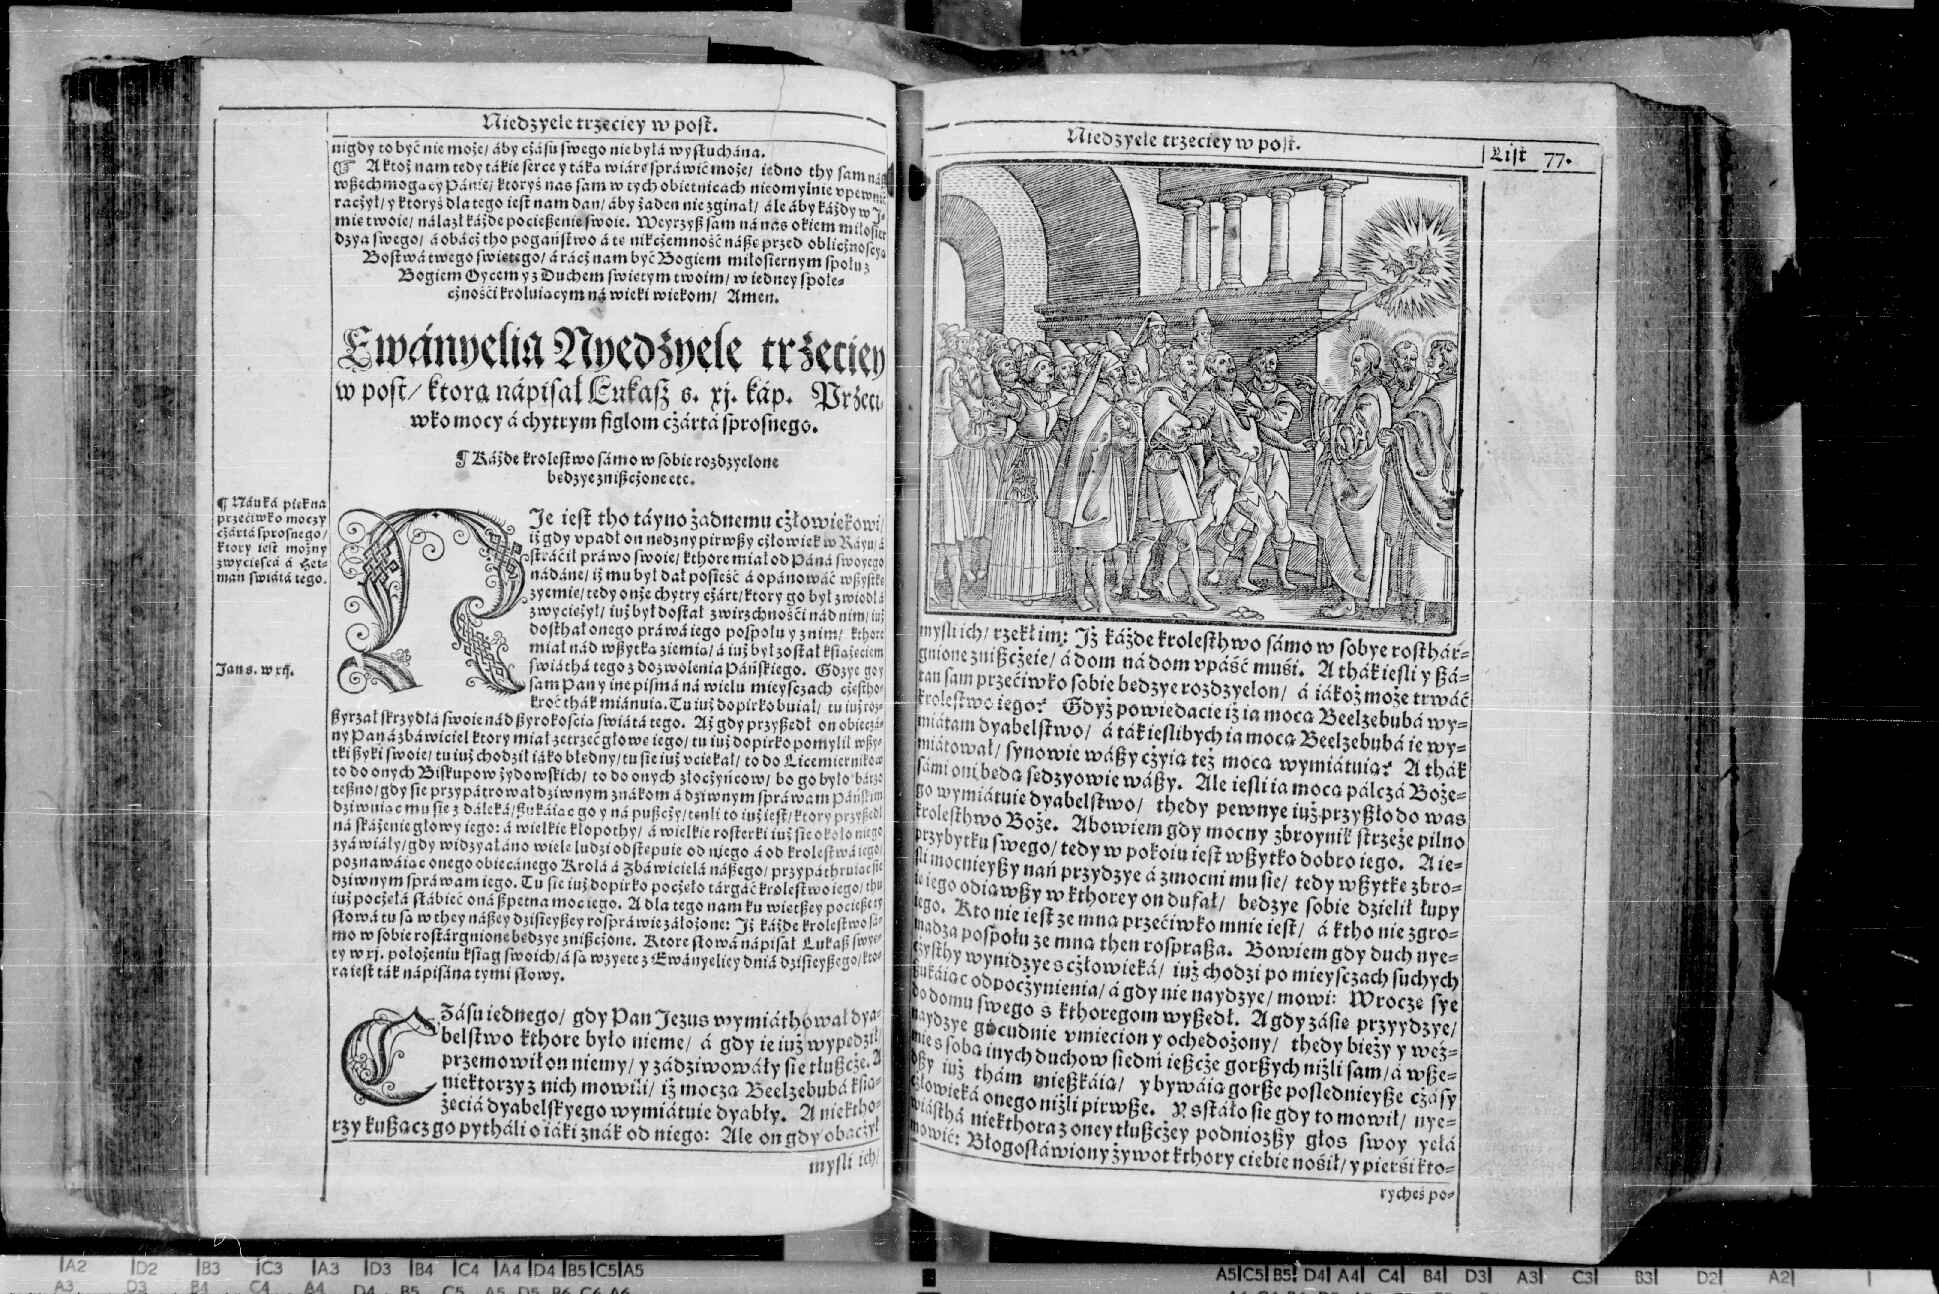 Niedzyele trzeciey w post.
nigdy to być nie może/ áby cżásu swego nie byłá wysłuchána.
A ktoż nam tedy tákie serce y táką wiárę spráwić może/ iedno thy sam
wßechmogący Pánie/ ktoryś nas sam w tych obietnicach nieomylnie
racżył/ y ktoryś dla tego iest nam dan/ áby żaden nie zginął/ ále áby káżdy w
mię twoie/ nálazł káżde pocießenie swoie. Weyrzyß sam ná nas okiem miłosier
dzya swego/ á obácż tho pogáństwo á te nikcżemność náßę przed oblicżnoscyą
Bostwá twego swiętego/ á rácż nam być Bogiem miłosiernym społu z
Bogiem Oycem y z Duchem swiętym twoim/ w iedney społe-
cżnośći kroluiącym ná wieki wiekom/ Amen.
Ewányelia Nyedżyele trzeciey
w post/ ktorą nápisał Lukasz s. xj. káp. Przeci
wko mocy á chytrym figlom cżártá sprosnego.
¶ Káżde krolestwo sámo w sobie rozdzyelone
będzye znißcżone etc.
¶ Náuká piękna
przećiwko moczy
cżártá sprosnego/
ktory iest możny
zwyciescá á Het-
man świátá tego.
Jan s. w xij.
NJe iest tho táyno żadnemu cżłowiekowi/
iż gdy vpadł on nędzny pirwßy cżłowiek w Ráyu/ á
stráćił práwo swoie/ kthore miał od Páná swoyego
nádáne/ iż mu był dał posieść á opánowáć wßystkę
zyemię/ tedy onże chytry cżárt/ ktory go był zwiodł á
zwyćiężył/ iuż był dostał zwirzchnośći nád nim/ iuż
dosthał onego práwá iego pospołu y z nim/ kthore
miał nád wßytką ziemią/ á iuż był został książęciem
świáthá tego z dozwolenia Páńskiego. Gdzye go y
sam Pan y ine pismá ná wielu mieysczach cżestho-
kroć thák miánuią. Tu iuż dopirko buiał/ tu iuż roz-
ßyrzał skrzydłá swoie nád ßyrokośćią świátá tego. Aż gdy przyßedł on obiecá-
ny Pan á zbáwiciel ktory miał zetrzeć głowę iego/ tu iuż dopirko pomylił wßy-
tki ßyki swoie/ tu iuż chodził iáko błędny/ tu sie iuż vciekał/ to do Licemiernikow
to do onych Biskupow żydowskich/ to do onych złocżyńcow/ bo go było bárzo
teßno/ gdy sie przypátrował dziwnym znákom á dziwnym spráwam Páńskim
dziwuiąc mu sie z dáleká/ ßukáiąc go y ná pußcży/ tenli to iuż iest/ ktory przyßedł
ná skáżenie głowy iego: á wielkie kłopothy/ á wielkie rosterki iuż sie około niego
zyáwiáły/ gdy widzyał áno wiele ludzi odstępuie od niego á od krolestwá iego/
poznawáiąc onego obiecánego Krolá á Zbáwicielá náßego/ przypáthruiąc sie
dziwnym spráwam iego. Tu sie iuż dopirko pocżęło tárgáć krolestwo iego/ thu
iuż pocżęłá słábieć oná ßpetna moc iego. A dla tego nam ku więtßey pocieße ty
słowá tu są w they náßey dzisieyßey rospráwie záłożone: Jż káżde krolestwo sá-
mo w sobie rostárgnione będzye znißcżone. Ktore słowá nápisał Lukaß swyę-
ty w xj. położeniu ksiąg swoich/ á są wzyęte z Ewányeliey dniá dzisieyßego/ kto-
ra iest ták nápisána tymi słowy.
CZásu iednego/ gdy Pan Jezus wymiáthował dyá-
belstwo kthore było nieme/ á gdy ie iuż wypędził/
przemowił on niemy/ y zádziwowáły sie tłußcże. A
niektorzy z nich mowili/ iż mocżą Beelzebubá ksią-
żęciá dyabelskyego wymiátuie dyabły. A niektho-
rzy kußącz go pytháli o iáki znák od niego: Ale on gdy obacżył
mysli ich/
Niedzyele trzeciey w post.
List 77.
mysli ich/ rzekł im: Jż káżde krolesthwo sámo w sobye rosthár-
gnione znißcżeie/ á dom ná dom vpáść muśi. A thák iesli y ßá-
tan sam przećiwko sobie będzye rozdzyelon/ á iákoż może trwáć
krolestwo iego? Gdyż powiedacie iż ia mocą Beelzebubá wy-
miátam dyabelstwo/ á ták ieslibych ia mocą Beelzebubá ie wy-
miátował/ synowie wáßy cżyią też mocą wymiátuią? A thák
sámi oni będą sędzyowie wáßy. Ale iesli ia mocą pálczá Boże-
go wymiátuię dyabelstwo/ thedy pewnye iuż przyßło do was
krolesthwo Boże. Abowiem gdy mocny zbroynik strzeże pilno
przybytku swego/ tedy w pokoiu iest wßytko dobro iego. A ie-
sli mocnieyßy nań przydzye á zmocni mu sie/ tedy wßytkę zbro-
ię iego odiąwßy w kthorey on dufał/ będzye sobie dzielił łupy
iego. Kto nie iest ze mną przećiwko mnie iest/ á ktho nie zgro-
madza pospołu ze mną then rospraßa. Bowiem gdy duch nye-
cżysthy wynidzye s cżłowieká/ iuż chodzi po mieysczach suchych
ßukáiąc odpocżynienia/ á gdy nie naydzye/ mowi: Wrocżę sye
do domu swego s kthoregom wyßedł. A gdy zásię przyydzye/
naydzye gocudnie vmieciony ochędożony/ thedy bieży y weź-
mie s sobą inych duchow siedḿ ießcże gorßych niżli sam/ á wße-
dßy iuż thám mießkáią/ y bywáią gorße poslednieyße cżásy
cżłowieká onego niżli pirwße. Y sstáło sie gdy to mowił/ nye-
wiásthá niekthora z oney tłußcżey podniozßy głos swoy yęłá
mowić: Błogosłáwiony żywot kthory ciebie nośił/ y pierśi kto-
rycheś po-
A2 D2 B3 C3 A3 D3 B4 C4 A4 D4 B5 C5 A5
A3 D3 B4 C4 A4 D4 B5 C5 A5 D5 B6 C6 A6
A5 C5 B5 D4 A4 C4 B4 D3 A3 C3 B3 D2 A2